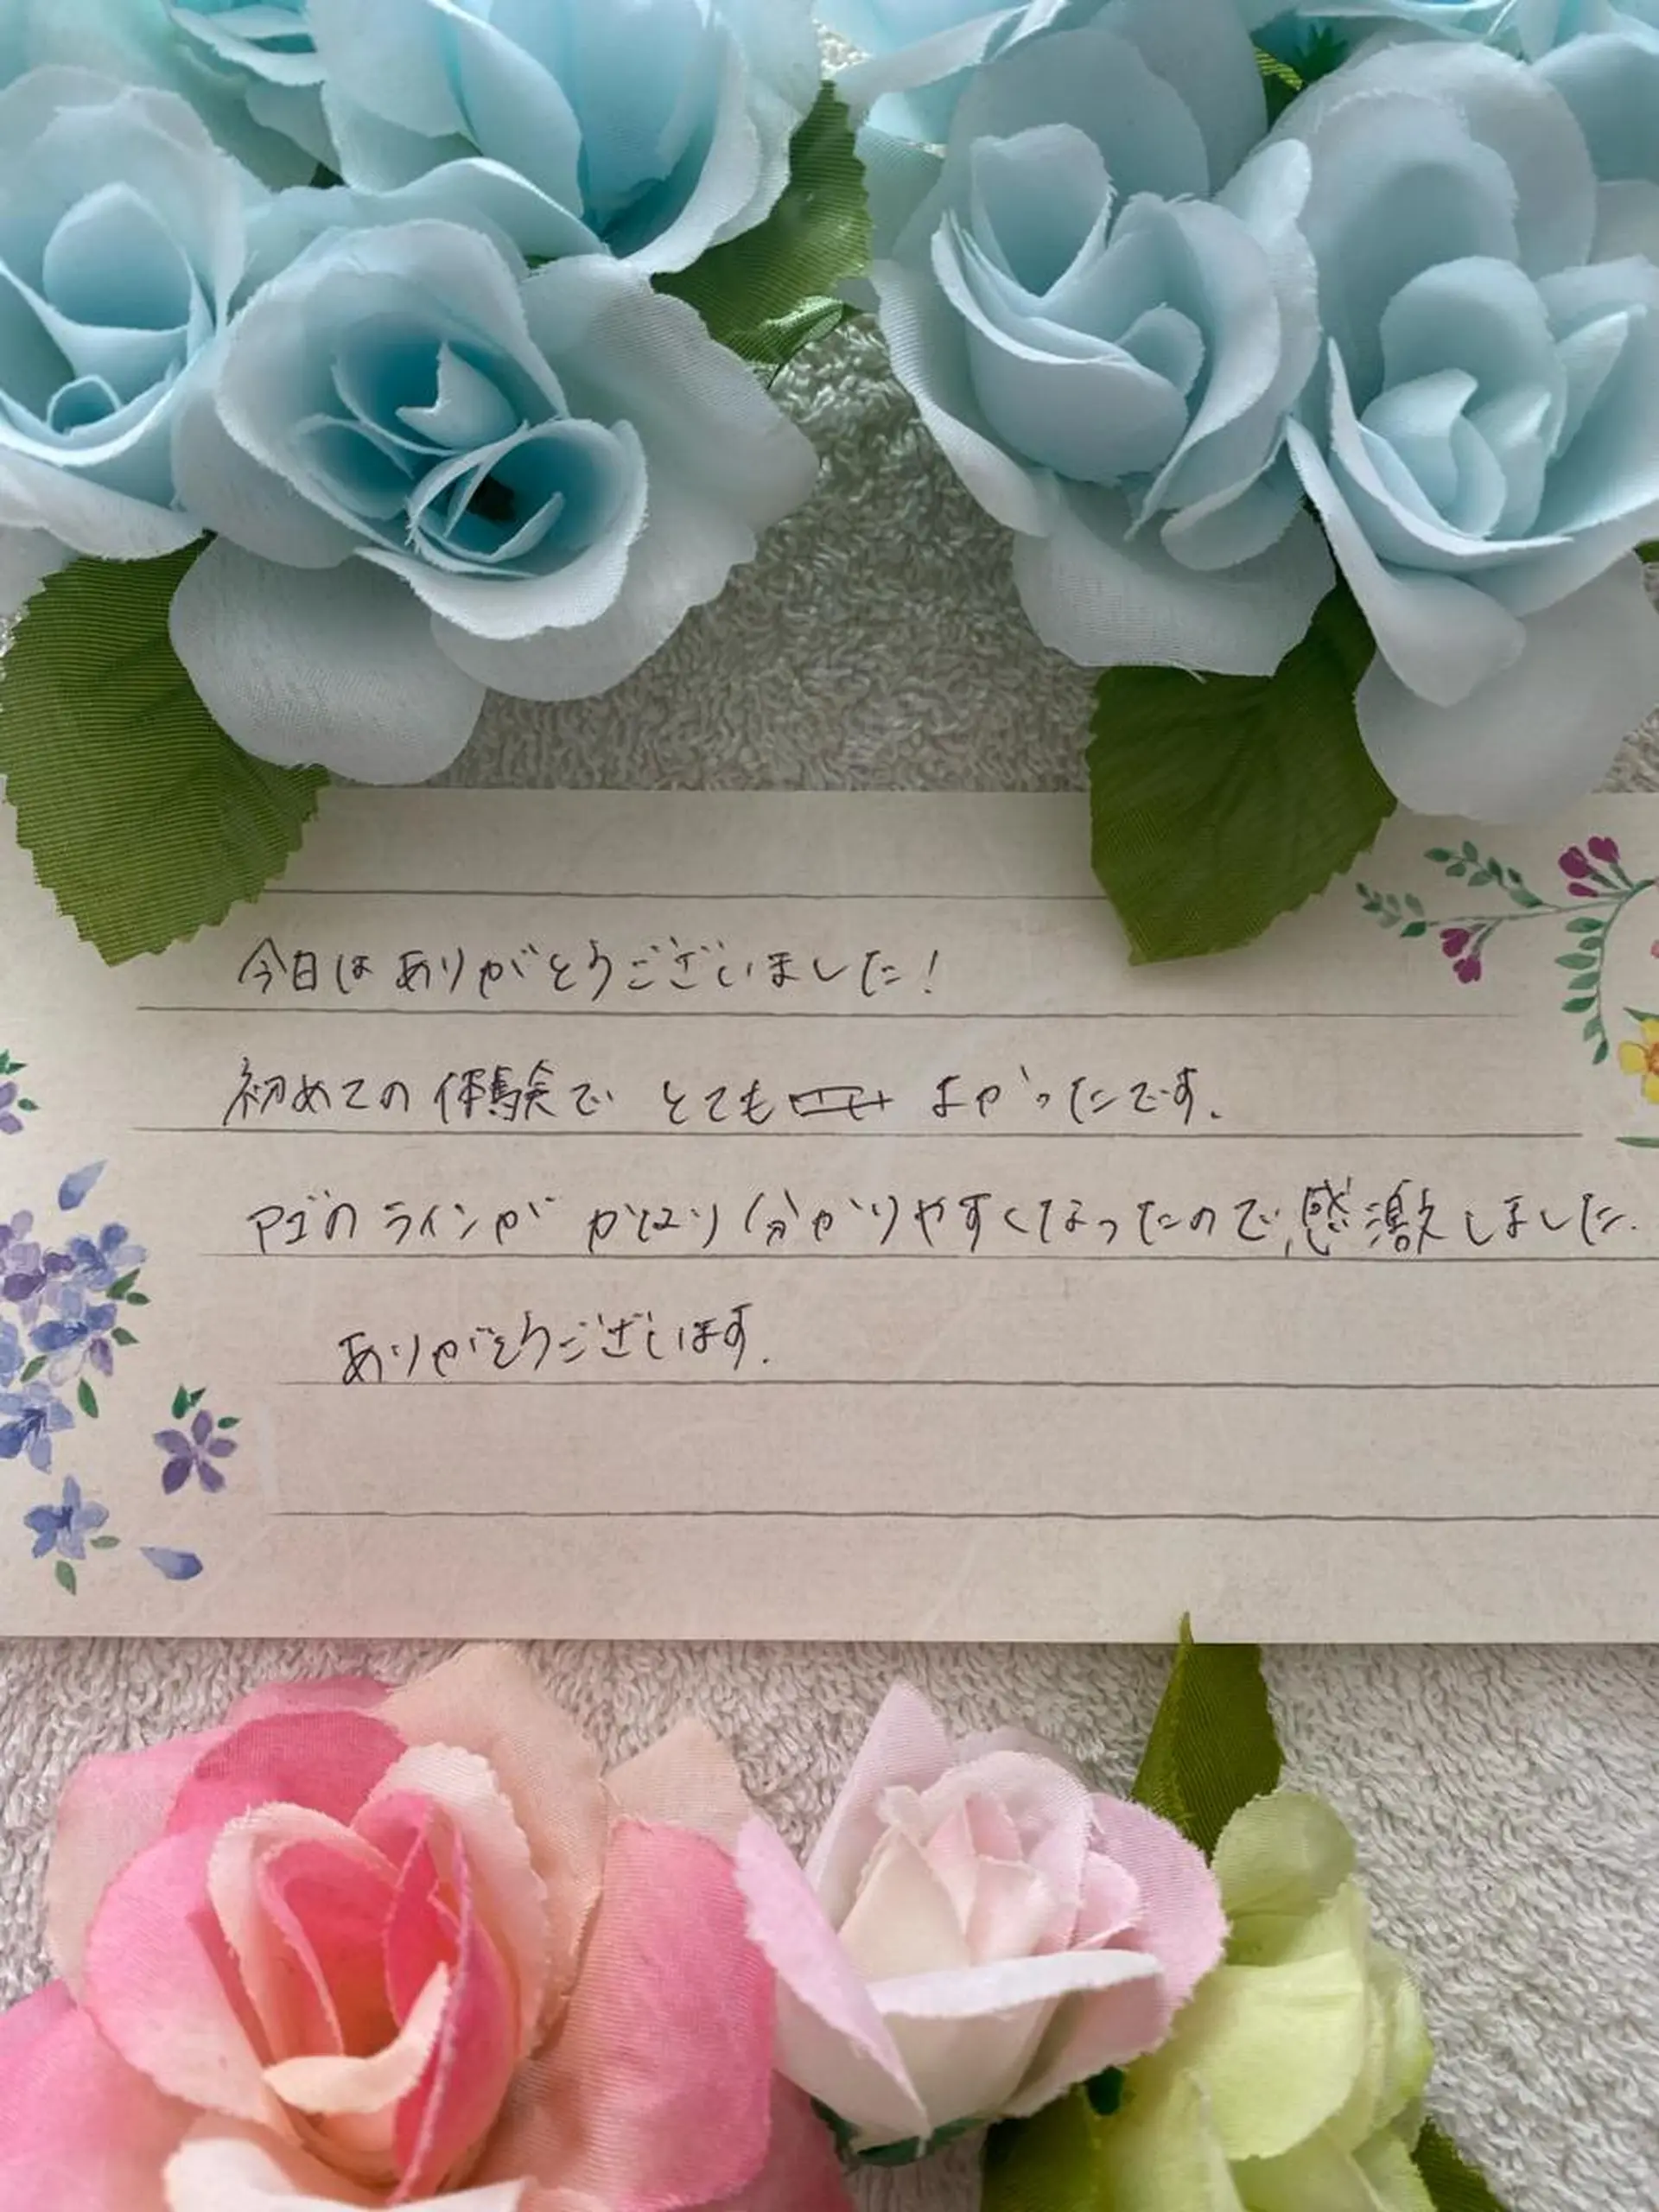 今日はありがとうございました！
初めての体験で とても よかったです。
アゴのラインが かなり分かりやすくなったので、感激しました。
ありがとうございます。